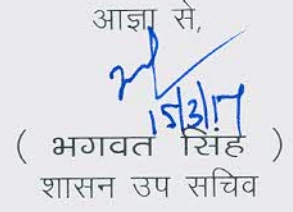 आज्ञा से,
15/3/17
( भगवत सिंह )
शासन उप सचिव